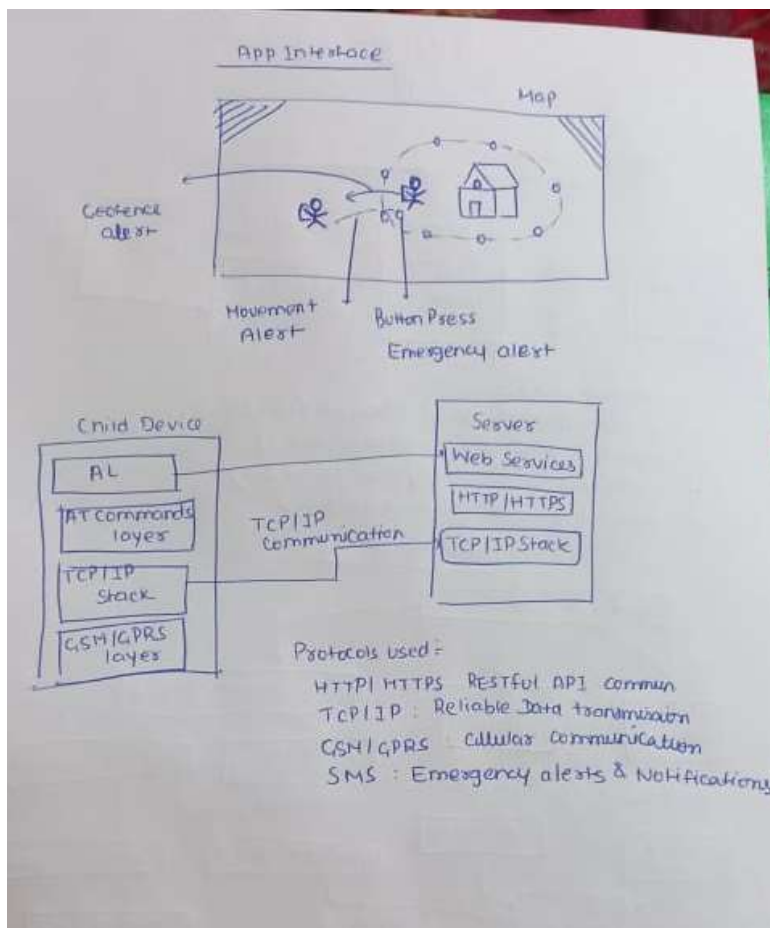 App Interface
Map
Geofence
alert
Movement
Alert
Button Press
Emergency alert
Child Device
AL
AT commands
layer
TCP/IP
Stack
GSM/GPRS
layer
TCP/IP
Communication
Server
Web Services
HTTP/HTTPS
TCP/IP Stack
Protocols used :-
HTTP/HTTPS RESTful API commun
TCP/IP : Reliable Data transmission
GSM/GPRS : Cellular communication
SMS : Emergency alerts & Notifications